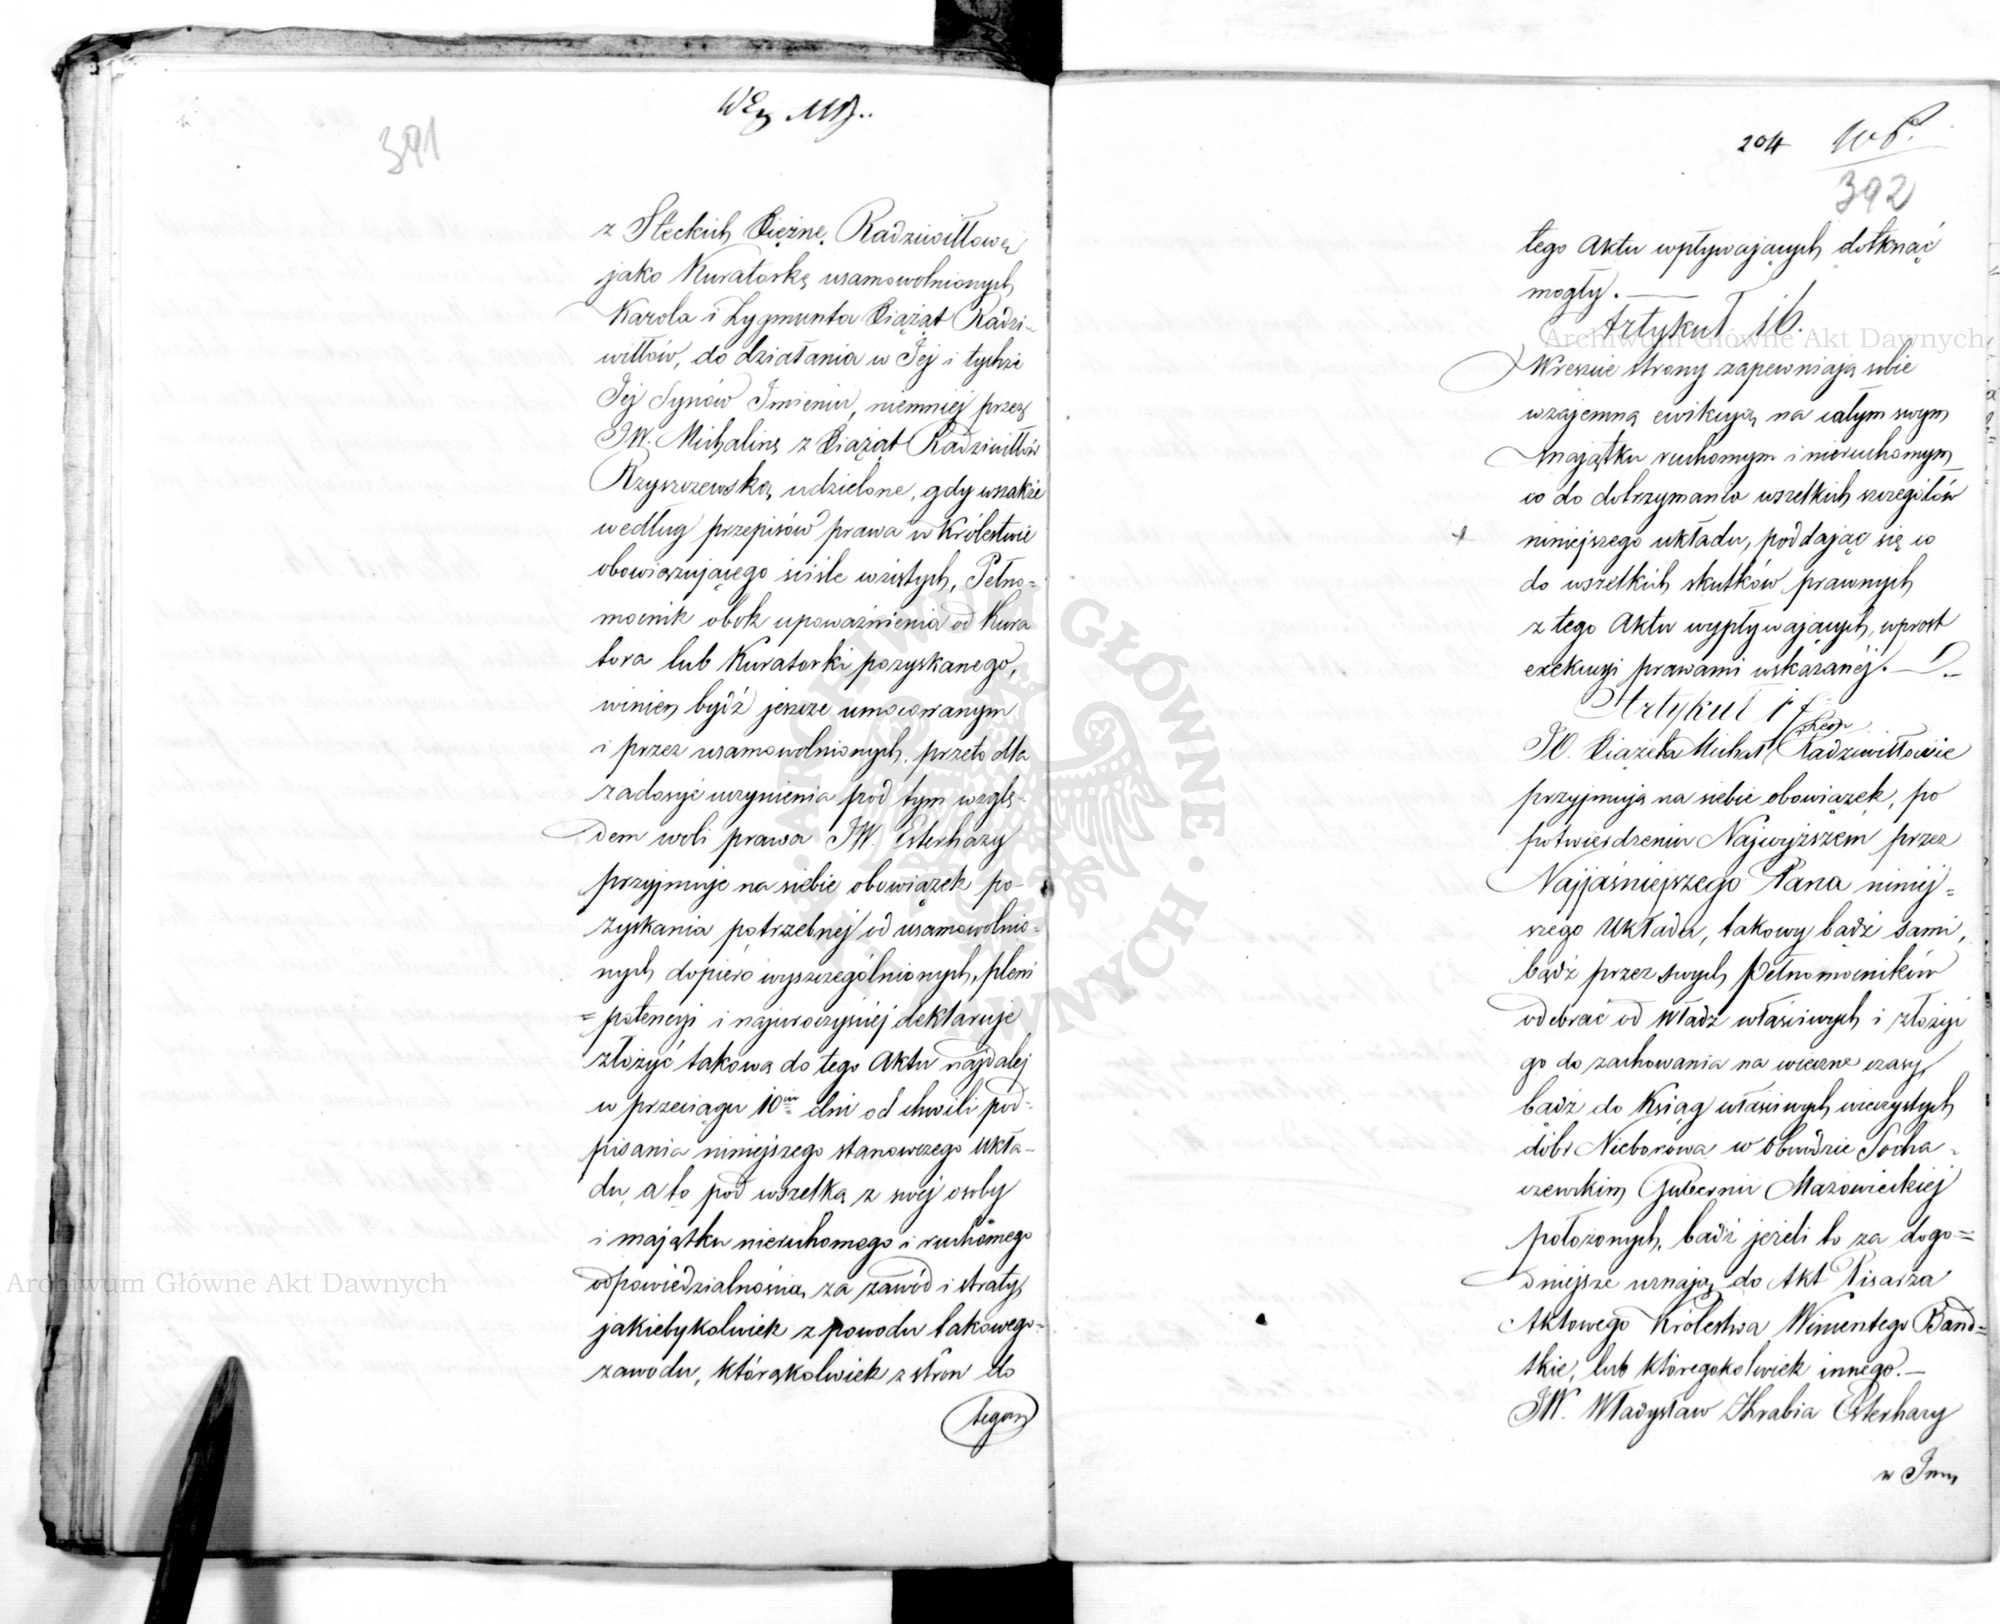 391
z Steckich Xiężnę Radziwiłłową
jako Kuratorkę usamowolnionych
Karola i Zygmunta Xiążąt Radzi-
wiłłów, do działania w Jej i tychże
Jej Synów Imieniu, niemniej przez
JW. Michalinę z Xiążąt Radziwiłłów
Rzyszczewską udzielone, gdy wszakże
według przepisów prawa w Królestwie
obowiązującego ściśle wziętych, Pełno-
mocnik obok upoważnienia od Kura
tora lub Kuratorki pozyskanego,
winien bydź jeszcze umocowanym
i przez usamowolnionych, przeto dla
zadosyć uczynienia pod tym wzglę-
dem woli prawa JW. Esterhazy
przyjmuje na siebie obowiązek po-
zyskania potrzebnej od usamowolnio-
nych dopiero wyszczególnionych, pleni
=potencyi i najuroczyściej deklaruje
złożyć takową do tego Aktu najdalej
w przeciągu 10iu dni od chwili pod-
pisania niniejszego stanowczego Ukła-
du, a to pod wszelką z swej osoby
i majątku nieruchomego i ruchomego
odpowiedzialnością za zawód i straty,
jakiebykolwiek z powodu takowego-
zawodu, którąkolwiek z stron do
tegoż
204
392
tego Aktu wpływających dotknąć
mogły.
Artykuł 16.
Wreszcie strony zapewniają sobie
wzajemną ewikcyą na całym swym
majątku ruchomym i nieruchomym
co do dotrzymania wszelkich szczegółów
niniejszego układu, poddając się co
do wszelkich skutków prawnych
z tego Aktu wypływających, wprost
exekucyi prawami wskazanéj.
Artykuł 17
JO. Xiążęta Michał Radziwiłłowie
przyjmują na siebie obowiązek, po
potwierdzeniu Najwyższém przez
Najjaśniejszego Pana niniej=
szego Układu, takowy bądź sami,
bądź przez swych Pełnomocników
odebrać od Władz właściwych i złożyć
go do zachowania na wieczne czasy,
bądź do Ksiąg właściwych wieczystych
dóbr Nieborowa w Obwodzie Socha-
czewskim Gubernii Mazowieckiej
położonych, bądź jeżeli to za dogo=
dniejsze uznają, do Akt Pisarza
Aktowego Królestwa Wincentego Band=
tkie, lub któregokolwiek innego.—
JW. Władysław Hrabia Esterhazy
w Imn
Archiwum Główne Akt Dawnych
Archiwum Główne Akt Dawnych